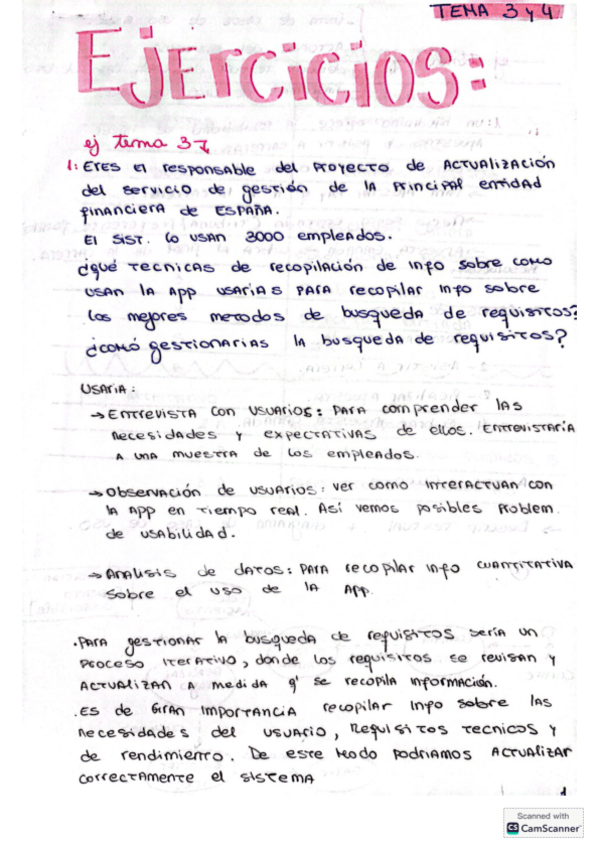 TEMA 3 y 4
EJERCICIOS:
ej tema 3
1: ERES El RESPONSABLE del PROYECTO de ACTUALIZACIÓN
del SERVICIO de gestión de LA PRINCIPAL entidad
financiera de ESPAÑA.
El SIST. lo USAN 3000 empleados.
¿QUÉ TECNICAS de recopilación de INFO sobre como
USAN LA APP USARIAS PARA recopilar INFO sobre
los mejores metodos de busqueda de requisitos?
¿COMÓ gestionarias la busqueda de requisitos?
USARIA:
→ ENTREVISTA con usuarios: PARA comprender LAS
necesidades y expectativas de ellos. ENTREVISTARÍA
A UNA MUESTRA de LOS EMPLEADOS.
→ Observación de usuarios: ver como INTERACTUAN con
la APP en tiempo real. Así vemos posibles PROBLEM.
de usabilidad.
→ ANALISIS de DATOS: PARA recopilar info CUANTITATIVA
sobre el uso de LA APP.
.PARA gestionar la busqueda de requisitos sería un
PROCESO ITERATIVO, donde los requisitos se revisan y
ACTUALIZAN A medida q' se recopila información.
.ES de GRAN IMPORTANCIA recopilar INFO sobre LAS
necesidades del usuario, Requisitos tecnicos y
de rendimiento. De este modo podríamos ACTUALIZAR
correctamente el sistema
1
Scanned with
CS CamScanner